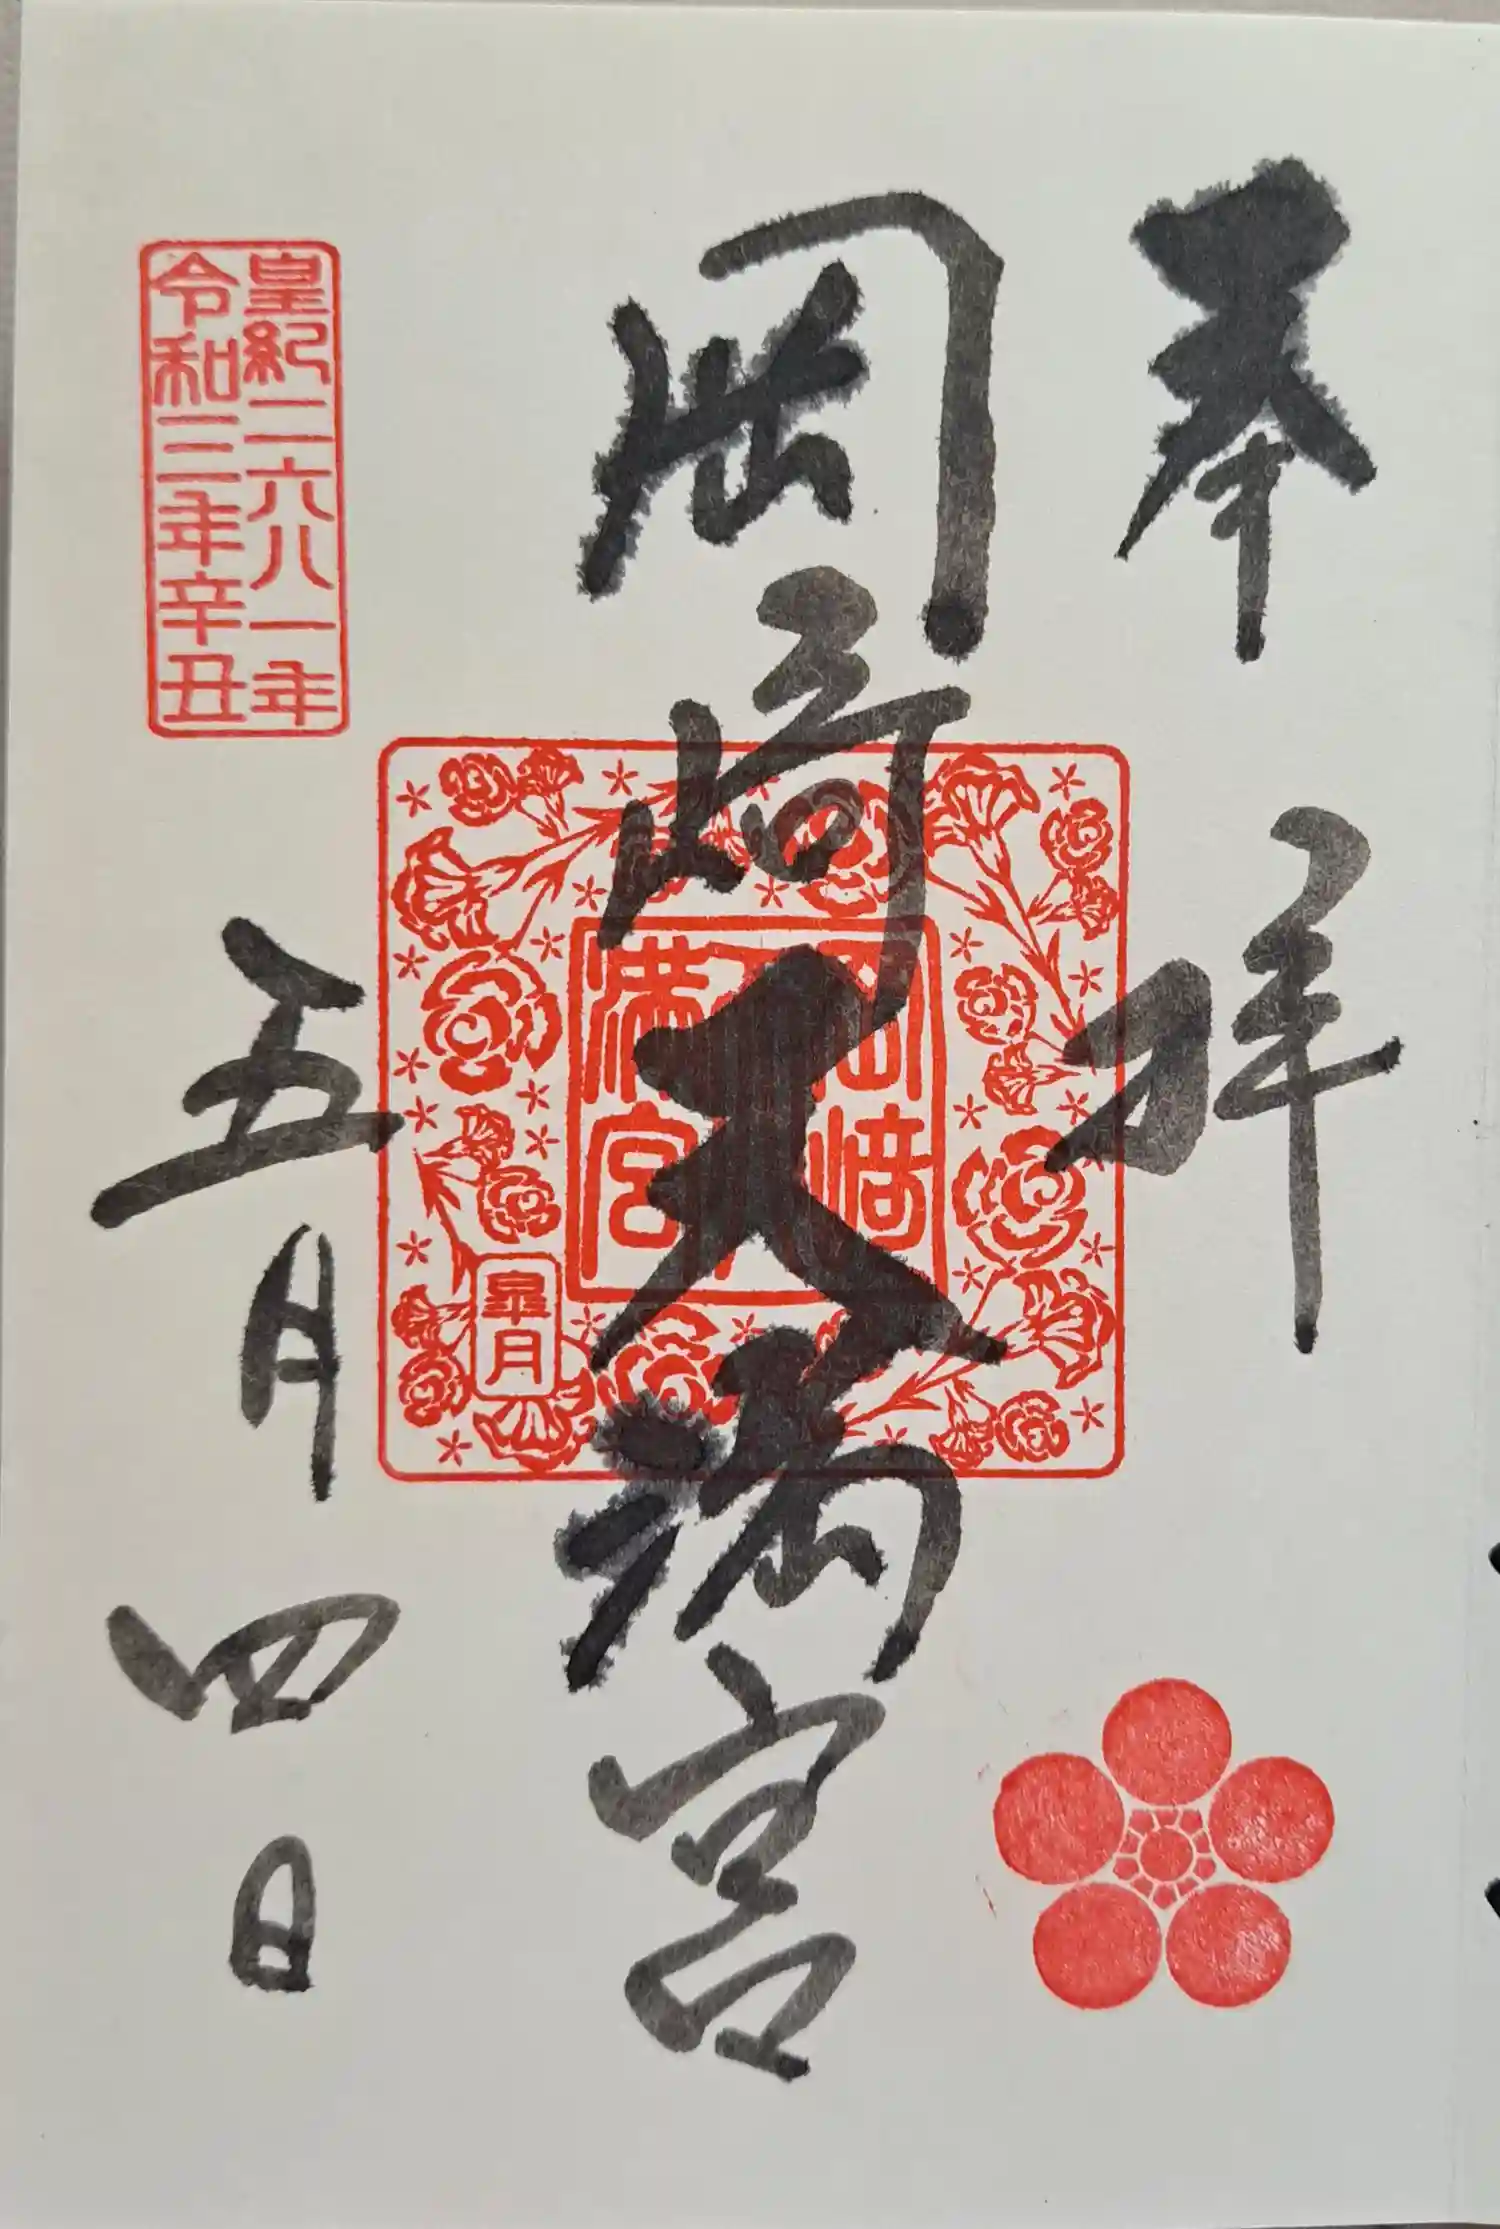 奉拝
岡崎天満宮
岡崎天満宮
皐月
皇紀二六八一年
令和三年辛丑
五月四日